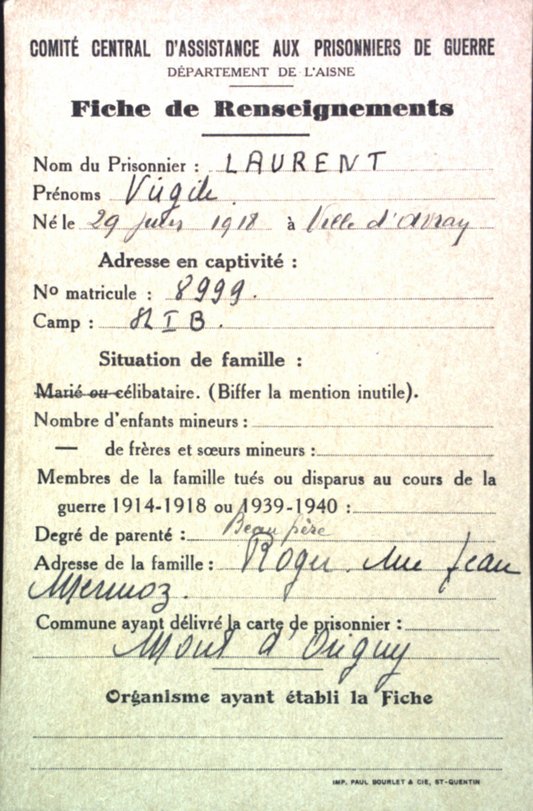 COMITÉ CENTRAL D'ASSISTANCE AUX PRISONNIERS DE GUERRE
DÉPARTEMENT DE L'AISNE
Fiche de Renseignements
Nom du Prisonnier : LAURENT
Prénoms Virgile
Né le 29 1918 à Ville d'Avray
Adresse en captivité :
No matricule : 8999.
Camp : I B.
Situation de famille :
Marié ou célibataire. (Biffer la mention inutile).
Nombre d'enfants mineurs :
— de frères et sœurs mineurs :
Membres de la famille tués ou disparus au cours de la
guerre 1914-1918 ou 1939-1940 :
Degré de parenté : Beau père
Adresse de la famille : Roger. rue Jean
Mermoz.
Commune ayant délivré la carte de prisonnier :
Mont d'Origny
Organisme ayant établi la Fiche
IMP. PAUL BOURLET & CIE, ST-QUENTIN